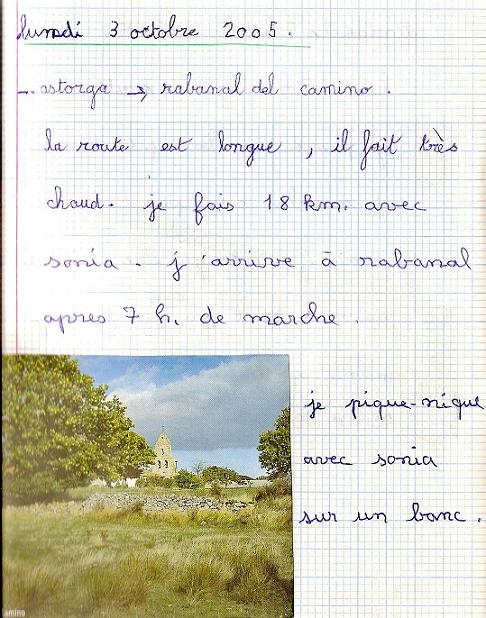 lundi 3 octobre 2005.
_. astorga → rabanal del camino.
la route est longue, il fait très
chaud. je fais 18 km. avec
sonia. j'arrive à rabanal
apres 7 h. de marche.
je pique-nique
avec sonia
sur un banc.
amino